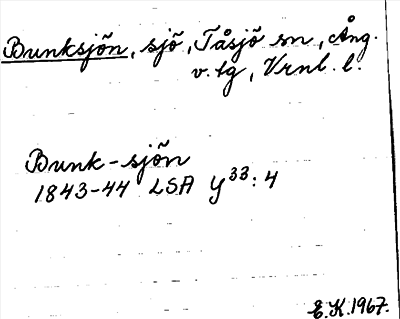 Bunksjön, sjö, Tåsjö sn, Ång.
v. tg, Vrnl. l.
Bunk-sjön
1843-44 LSA Y³³: 4
E.K. 1967.